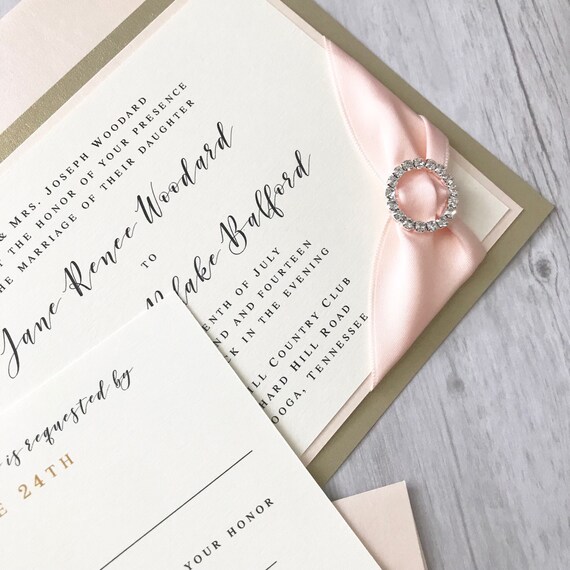 & Mrs. Joseph Woodard
the honor of your presence
the marriage of their daughter
Jane Renee Woodard
to
Blake Balford
of July
and fourteen
in the evening
Country Club
Hill Road
Tennessee
is requested by
24th
your honor